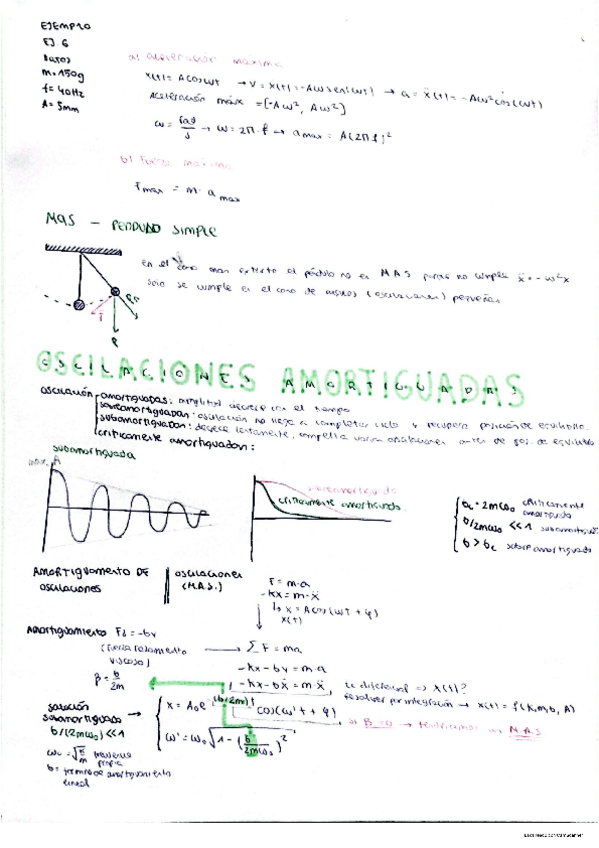 EJEMPLO
EJ. 6
Datos
m = 150g
f = 40Hz
A = 5mm
a) aceleración máxima
x(t) = A cos ωt → v = ẋ(t) = -Aω sen(ωt) → a = ẍ(t) = -Aω² cos(ωt)
Aceleración máx = [-Aω², Aω²]
ω = rad/s → ω = 2π·f → a max = A(2πf)²
b) Fuerza máxima
F max = m · a max
MAS - PENDULO SIMPLE
En el caso mas el péndulo no es MAS porque no cumple ẍ = -ω²x
solo se cumple en el caso de (oscilaciones) pequeñas
T
P
OSCILACIONES AMORTIGUADAS
oscilación amortiguadas: amplitud decrece con el tiempo
sobreamortiguadas: oscilación no llega a completar ciclo y recupera posición de equilibrio.
subamortiguadas: decrece lentamente, varias oscilaciones antes de pos. de equilibrio
criticamente amortiguadas:
subamortiguada
A
sobreamortiguada
criticamente amortiguada
bc = 2mω₀ criticamente amortiguada
b/2mω₀ << 1 subamortiguada
b > bc sobreamortiguada
AMORTIGUAMENTO DE OSCILACIONES
oscilaciones (M.A.S.)
F = m·a
-kx = m·ẍ
x = A cos(ωt + φ)
x(t)
Amortiguamiento Fd = -bv
(Fuerza rozamiento viscoso)
∑F = ma
-kx - bv = m·a
β = b/2m
-kx - bẋ = m·ẍ, diferencial => x(t)?
resolver por integración → x(t) = f(k, m, b, A)
solución subamortiguado
b/(2mω₀) << 1
x = A₀e^-(b/2m)t cos(ω't + φ)
→ M.A.S
ω' = ω₀ √1 - (b/2mω₀)²
ω₀ = √k/m propia
b = amortiguamiento lineal